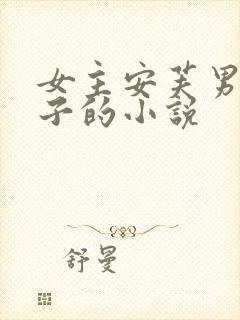 女主安芙男
子的小说
舒曼